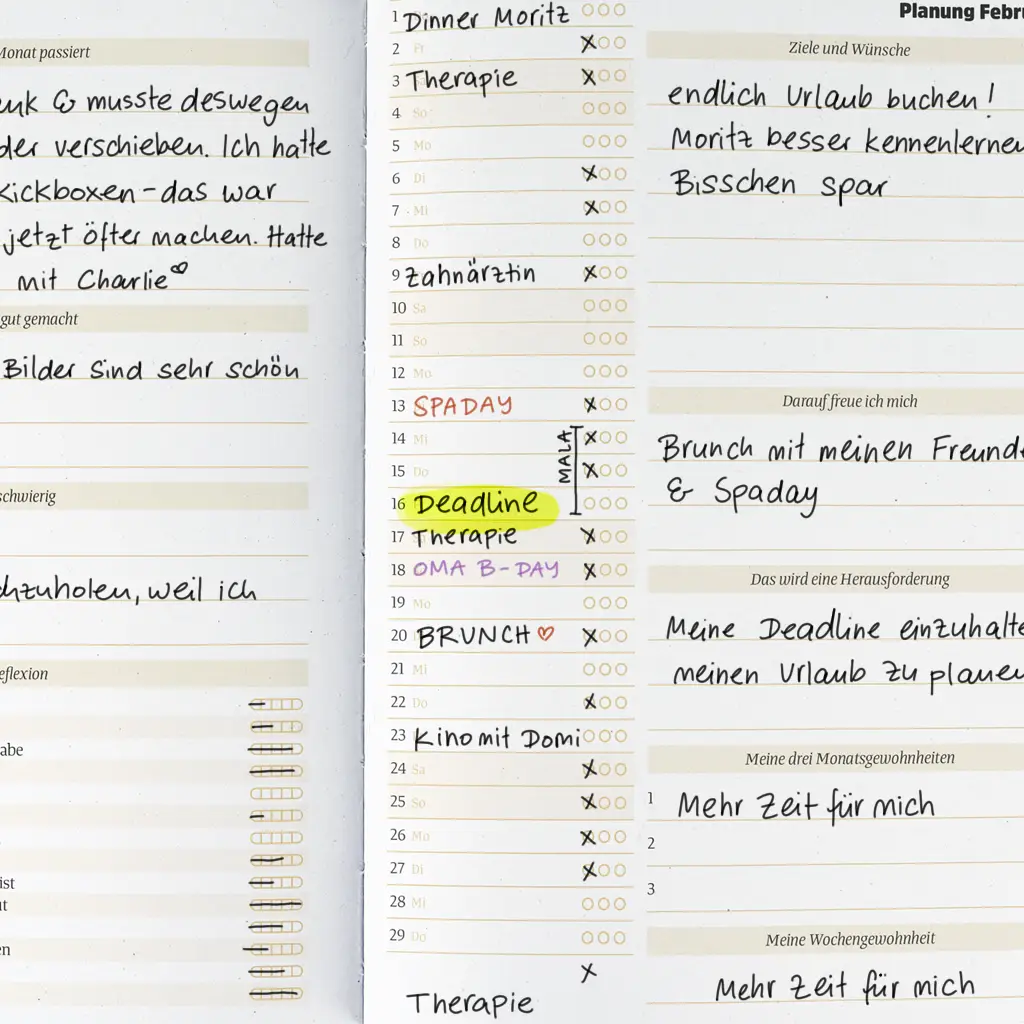 Monat passiert
musste deswegen
verschieben. Ich hatte
Kickboxen – das war
jetzt öfter machen. Hatte
mit Charlie♡
gut gemacht
Bilder sind sehr schön
schwierig
chzuholen, weil ich
eflexion
abe
ist
ut
en
1 Dinner Moritz
2 Fr X
3 Therapie X
4 So
5 Mo
6 Di X
7 Mi X
8 Do
9 Zahnärztin X
10 Sa
11 So
12 Mo
13 SPADAY X
14 Mi X
MALA
15 Do X
16 Deadline
17 Therapie X
18 OMA B-DAY X
19 Mo
20 BRUNCH ♡ X
21 Mi
22 Do X
23 Kino mit Domi
24 Sa X
25 So X
26 Mo X
27 Di X
28 Mi
29 Do
X
Therapie
Planung Febru
Ziele und Wünsche
endlich Urlaub buchen!
Moritz besser kennenlernen
Bisschen spar
Darauf freue ich mich
Brunch mit meinen Freunde
& Spaday
Das wird eine Herausforderung
Meine Deadline einzuhalte
meinen Urlaub zu planen
Meine drei Monatsgewohnheiten
1 Mehr Zeit für mich
2
3
Meine Wochengewohnheit
Mehr Zeit für mich